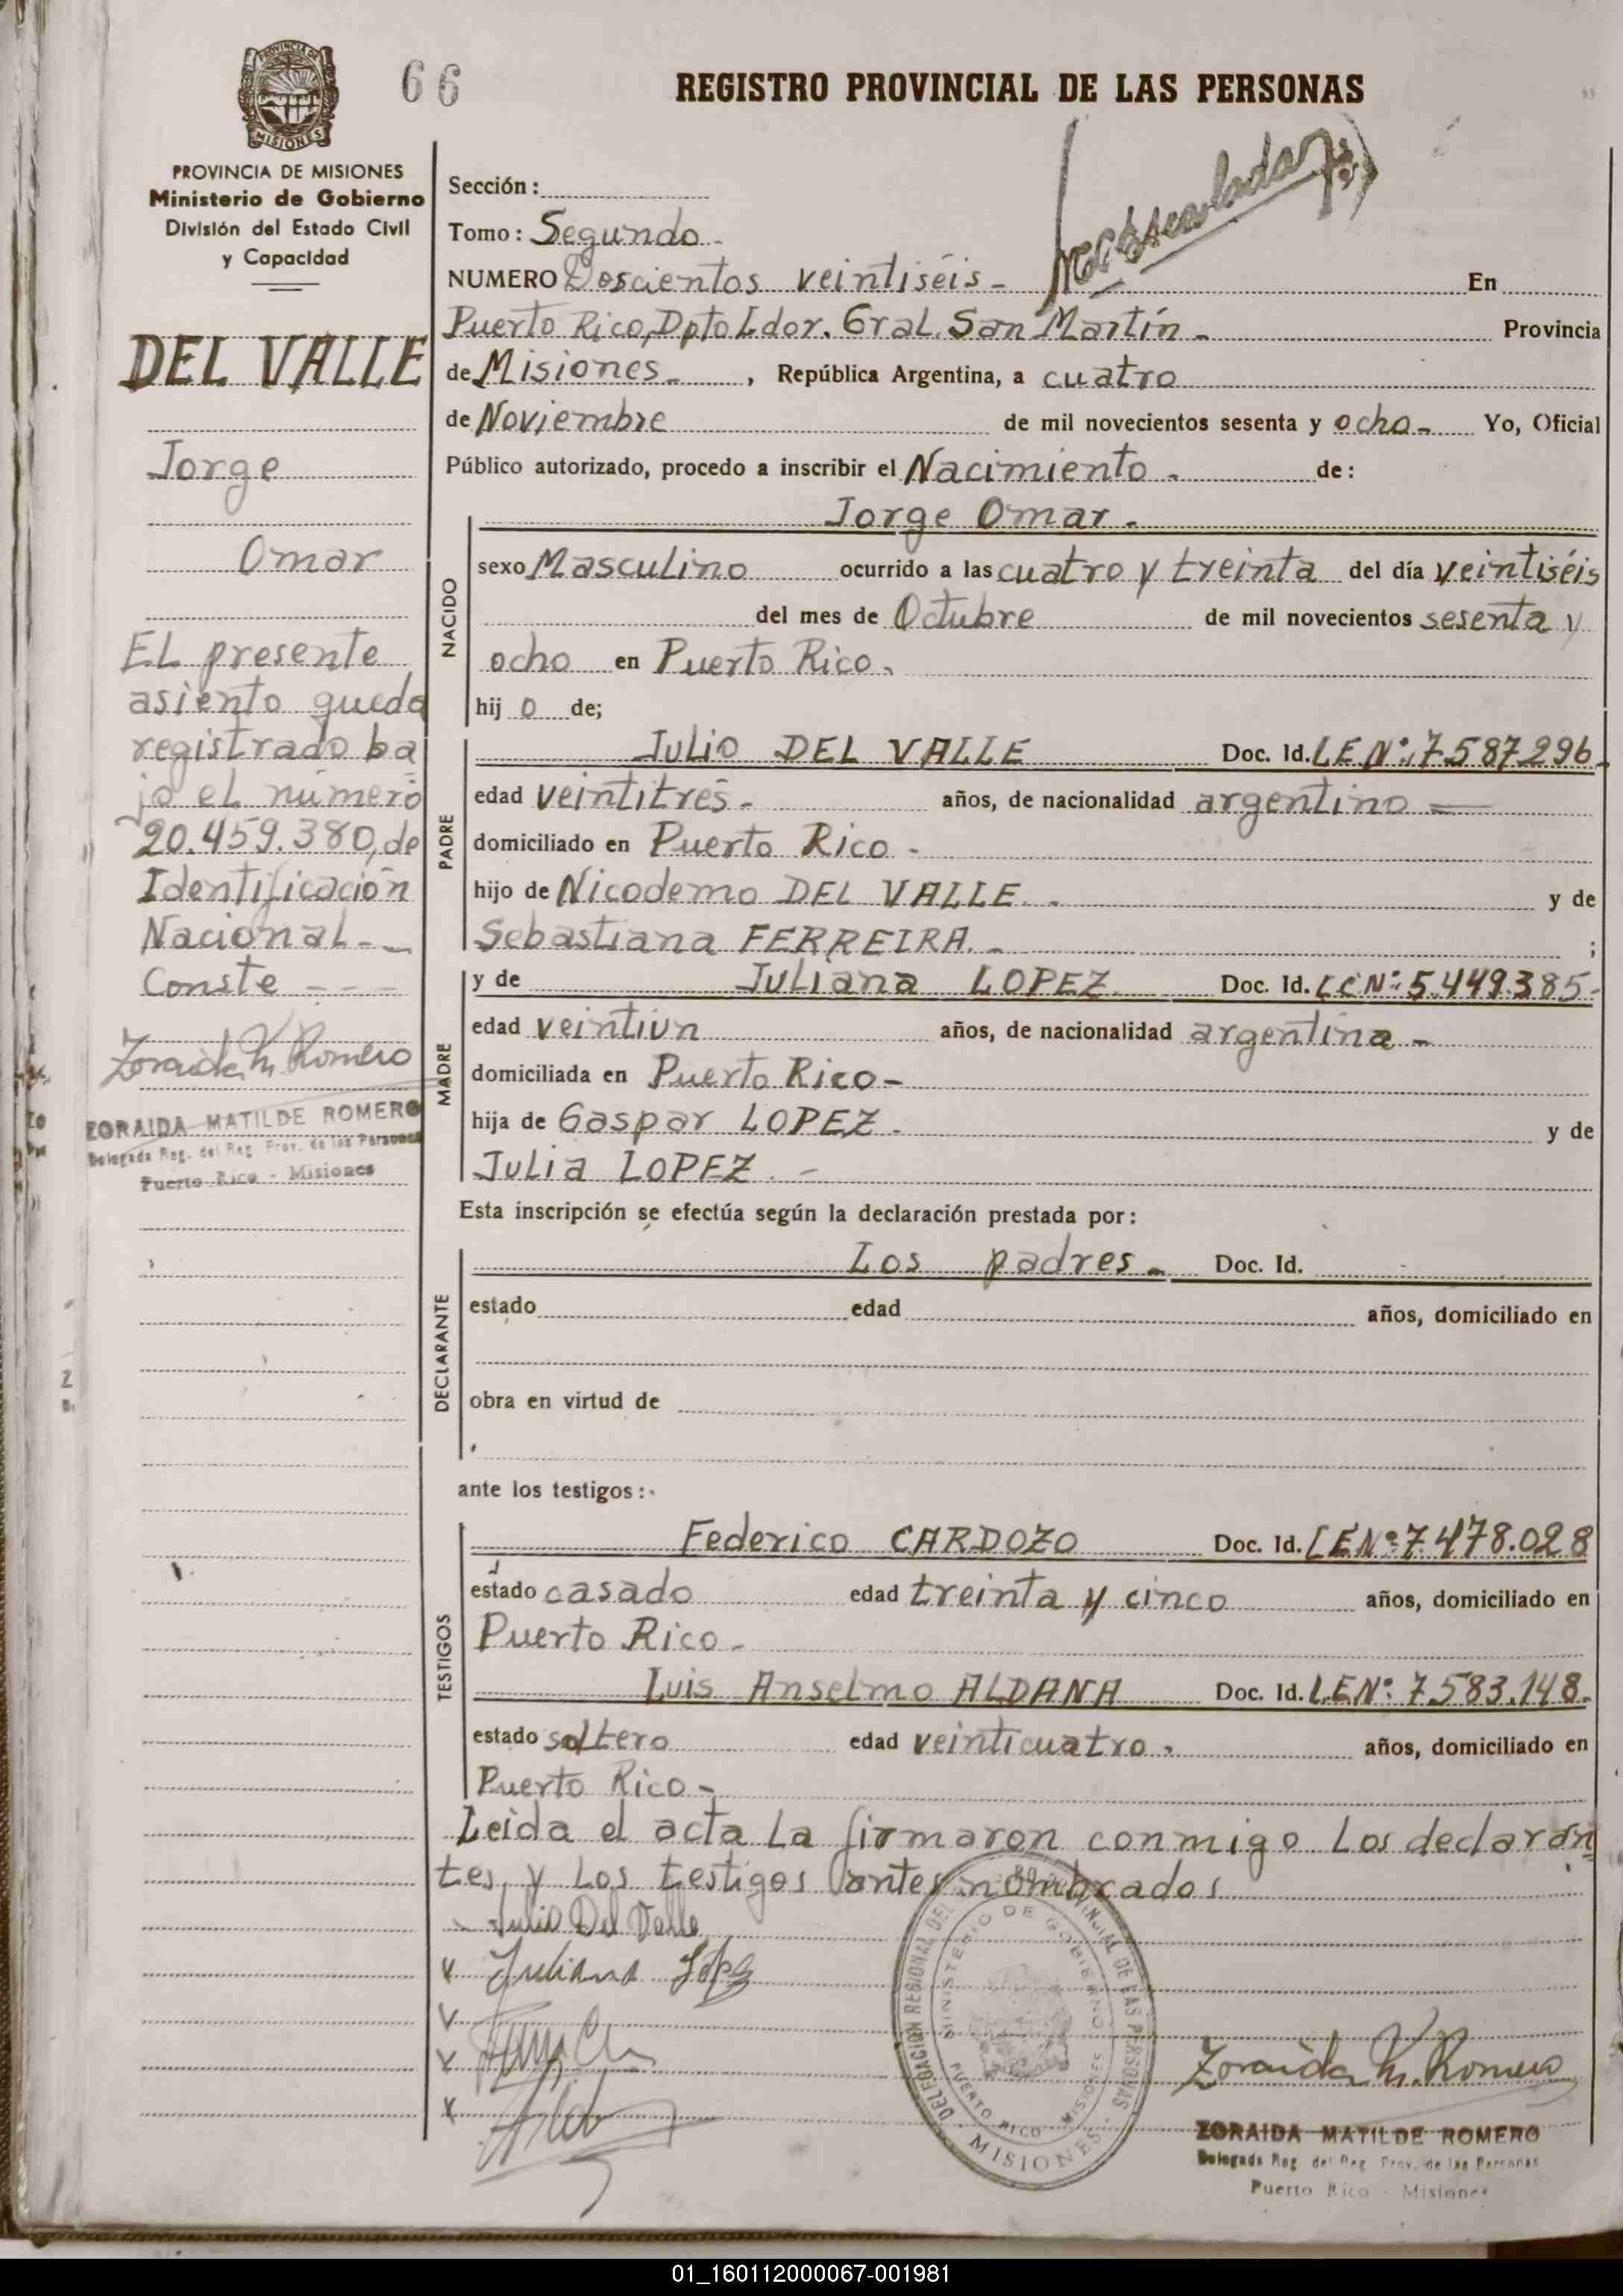 66
REGISTRO PROVINCIAL DE LAS PERSONAS
PROVINCIA DE MISIONES
MISIONES
PROVINCIA DE MISIONES
Ministerio de Gobierno
División del Estado Civil
y Capacidad
DEL VALLE
Jorge
Omar
EL presente
asiento queda
registrado ba
jo el número
20.459.380, de
Identificación
Nacional.-
Conste - - -
Zoraida M. Romero
ZORAIDA MATILDE ROMERO
Delegada Reg. del Reg. Prov. de las Personas
Puerto Rico - Misiones
Sección:
Tomo: Segundo.-
NUMERO Doscientos veintiséis - En
Puerto Rico, Dpto Ldor. Gral. San Martín.- Provincia
de Misiones.-, República Argentina, a cuatro
de Noviembre de mil novecientos sesenta y ocho.- Yo, Oficial
Público autorizado, procedo a inscribir el Nacimiento.- de:
NACIDO
Jorge Omar.-
sexo Masculino ocurrido a las cuatro y treinta del día veintiséis
del mes de Octubre de mil novecientos sesenta y
ocho en Puerto Rico.
hij o de;
PADRE
Julio DEL VALLE Doc. Id. LE Nº: 7587296.
edad veintitrés.- años, de nacionalidad argentino
domiciliado en Puerto Rico -
hijo de Nicodemo DEL VALLE.- y de
Sebastiana FERREIRA.- ;
MADRE
y de Juliana LOPEZ Doc. Id. LC Nº: 5.449.385-
edad veintiún años, de nacionalidad argentina.-
domiciliada en Puerto Rico-
hija de Gaspar LOPEZ.- y de
Julia LOPEZ.-
Esta inscripción se efectúa según la declaración prestada por:
DECLARANTE
Los padres.- Doc. Id.
estado edad años, domiciliado en
obra en virtud de
ante los testigos:
TESTIGOS
Federico CARDOZO Doc. Id. LE Nº 7.478.028
estado casado edad treinta y cinco años, domiciliado en
Puerto Rico.-
Luis Anselmo ALDANA Doc. Id. LE Nº: 7.583.148.
estado soltero edad veinticuatro.- años, domiciliado en
Puerto Rico.-
Leida el acta La firmaron conmigo Los declaran
tes, y Los testigos antes nombrados
Julio Del Valle
Juliana López
DELEGACION REGIONAL DEL REG. PROVINCIAL DE LAS PERSONAS
MINISTERIO DE GOBIERNO
PUERTO RICO - MISIONES
MISIONES
Zoraida M. Romero
ZORAIDA MATILDE ROMERO
Delegada Reg. del Reg. Prov. de las Personas
Puerto Rico - Misiones
01_160112000067-001981